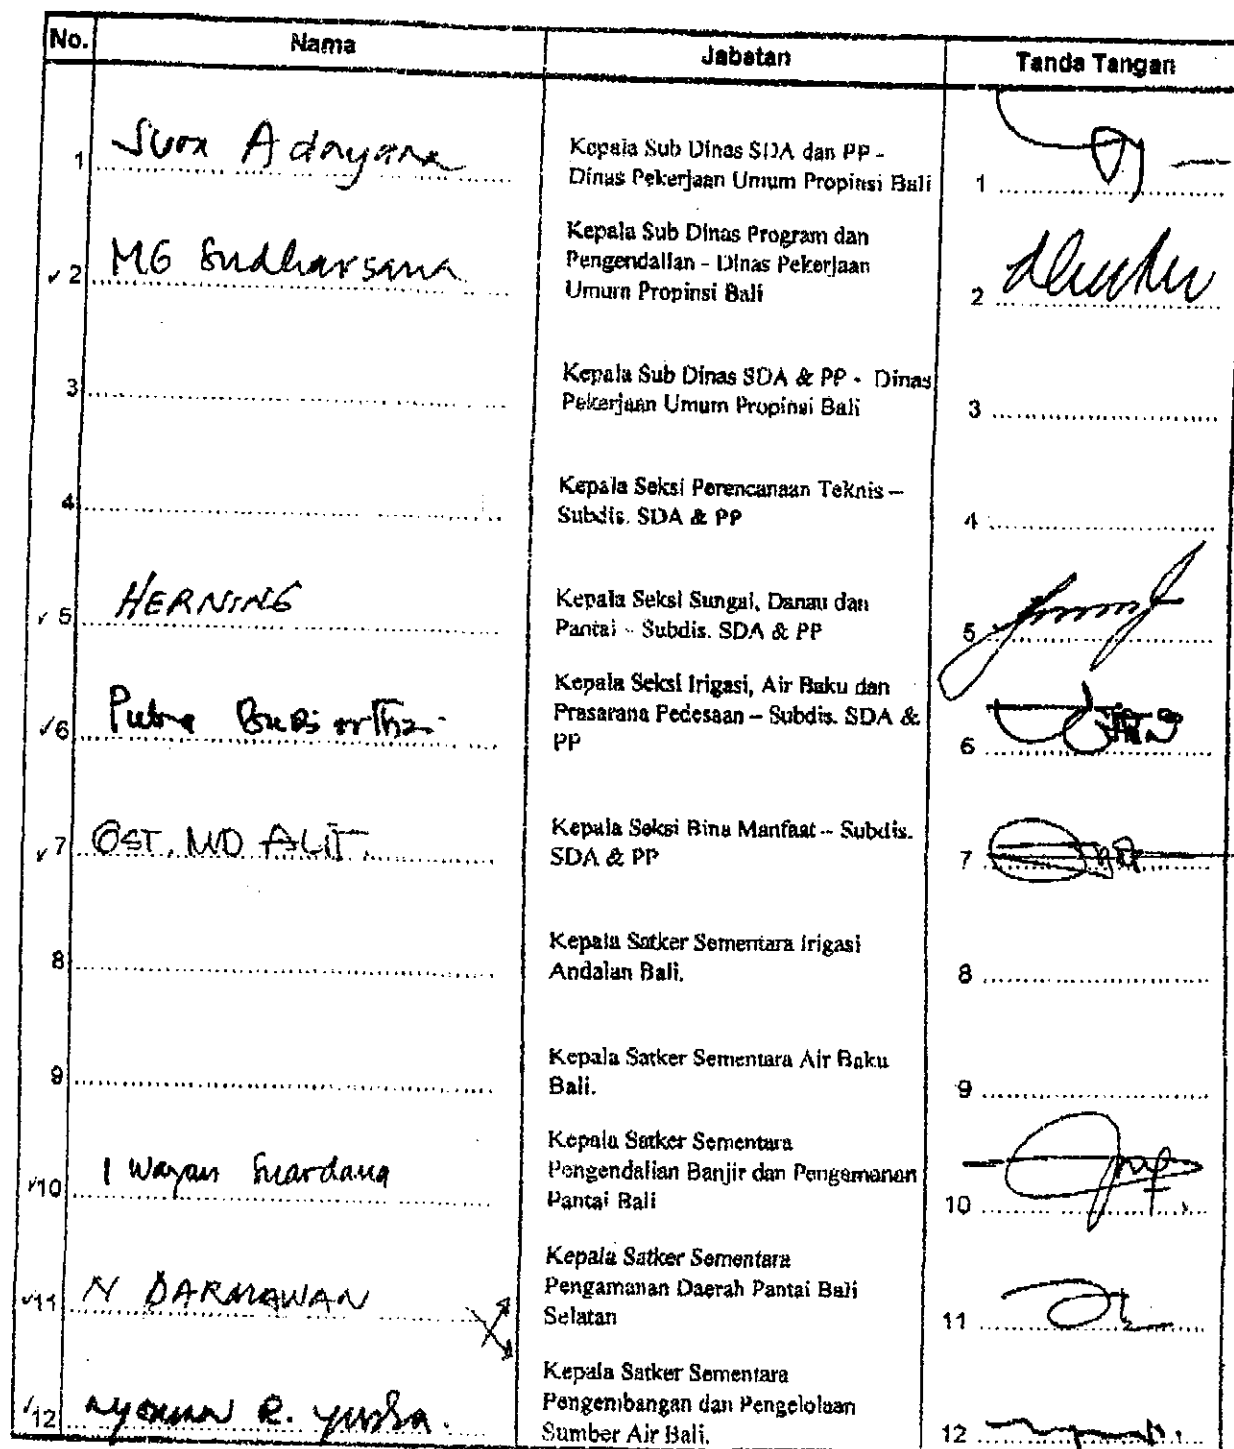 No. Nama Jabatan Tanda Tangan
1 Adnyana Kepala Sub Dinas SDA dan PP -
Dinas Pekerjaan Umum Propinsi Bali 1
2 MG Sudharsana Kepala Sub Dinas Program dan
Pengendalian - Dinas Pekerjaan
Umum Propinsi Bali 2
3 Kepala Sub Dinas SDA & PP - Dinas
Pekerjaan Umum Propinsi Bali 3
4 Kepala Seksi Perencanaan Teknis –
Subdis. SDA & PP 4
5 HERNING Kepala Seksi Sungai, Danau dan
Pantai – Subdis. SDA & PP 5
6 Putra Kepala Seksi Irigasi, Air Baku dan
Prasarana Pedesaan – Subdis. SDA &
PP 6
7 GST. MD ALIT. Kepala Seksi Bina Manfaat – Subdis.
SDA & PP 7
8 Kepala Satker Sementara Irigasi
Andalan Bali. 8
9 Kepala Satker Sementara Air Baku
Bali. 9
10 I Wayan Suardana Kepala Satker Sementara
Pengendalian Banjir dan Pengamanan
Pantai Bali 10
11 N DARMAWAN Kepala Satker Sementara
Pengamanan Daerah Pantai Bali
Selatan 11
12 Nyoman R. Kepala Satker Sementara
Pengembangan dan Pengelolaan
Sumber Air Bali. 12